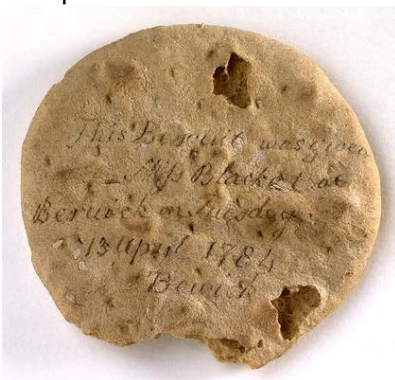 This Biscuit was given
– Miss Blacket at
Berwick on Tuesday
13 April 1784
Berwick